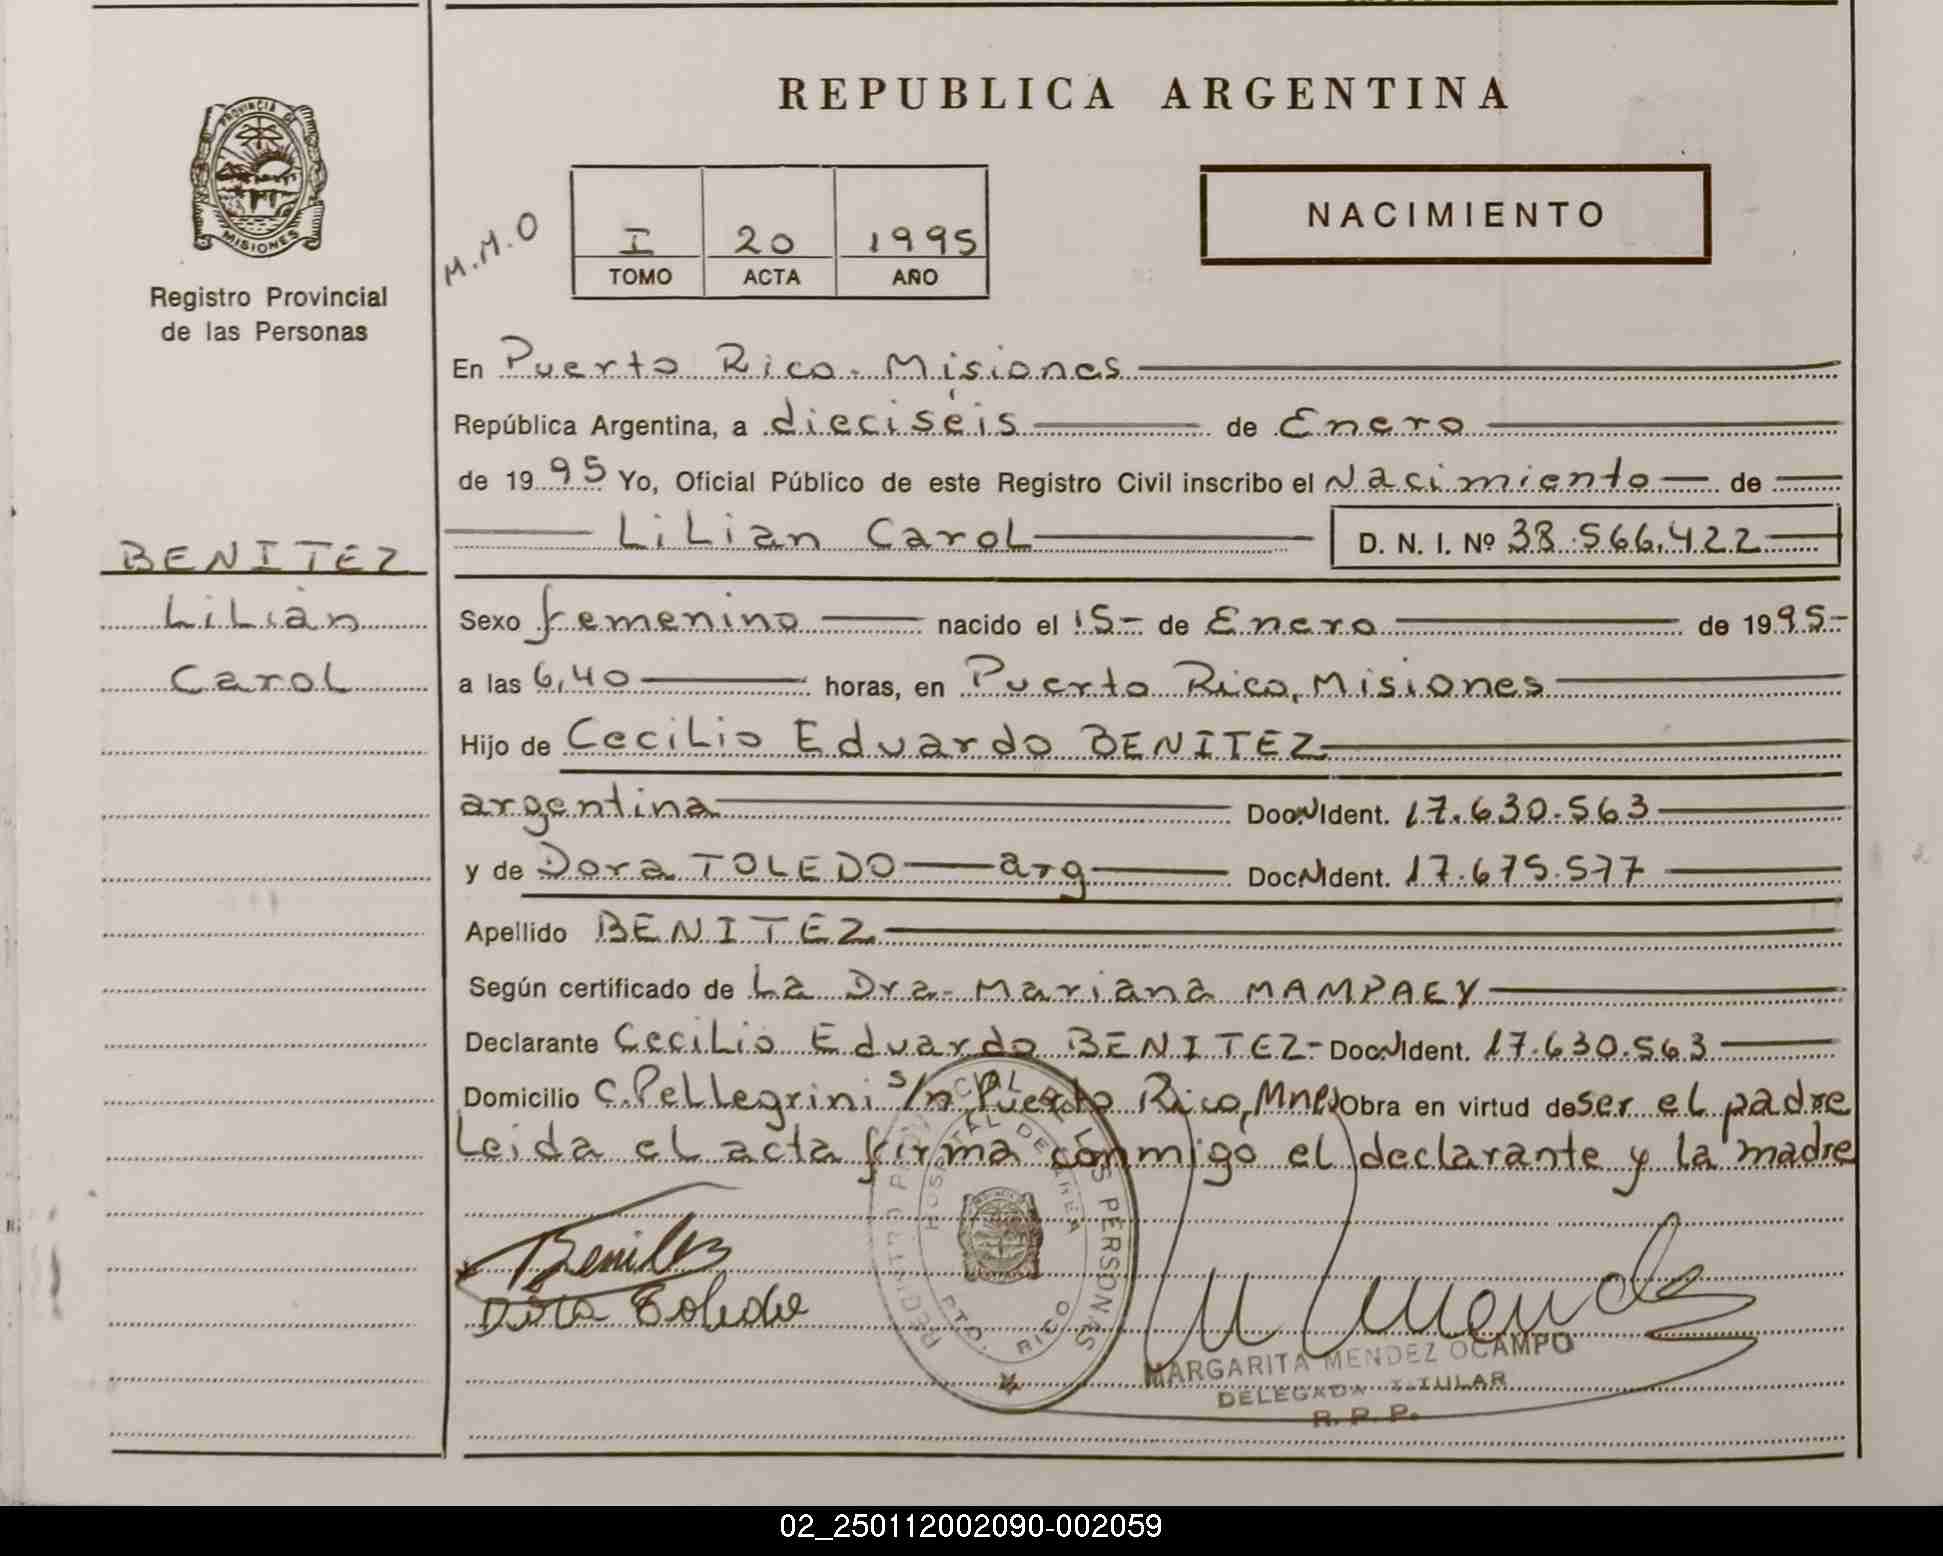 REPUBLICA ARGENTINA
PROVINCIA DE
MISIONES
Registro Provincial
de las Personas
M.M.O
I 20 1995
TOMO ACTA AÑO
NACIMIENTO
En Puerto Rico. Misiones
República Argentina, a dieciséis de Enero
de 1995 Yo, Oficial Público de este Registro Civil inscribo el Nacimiento de
Lilian Carol D. N. I. Nº 38.566.422
BENITEZ
Lilian
Carol
Sexo femenino nacido el 15- de Enero de 1995-
a las 6,40 horas, en Puerto Rico, Misiones
Hijo de Cecilio Eduardo BENITEZ
argentina Doc.N Ident. 17.630.563
y de Dora TOLEDO arg Doc.N Ident. 17.675.577
Apellido BENITEZ
Según certificado de La Dra. Mariana MAMPAEY
Declarante Cecilio Eduardo BENITEZ- Doc.N Ident. 17.630.563
Domicilio C.Pellegrini s/n Puerto Rico, Mnes Obra en virtud de ser el padre
Leida el acta firma conmigo el declarante y la madre
Benitez
Dora Toledo
REGISTRO PROVINCIAL DE LAS PERSONAS
HOSPITAL DE AREA
PTO. RICO
M Mendez
MARGARITA MENDEZ OCAMPO
DELEGADA TITULAR
R. P. P.
02_250112002090-002059